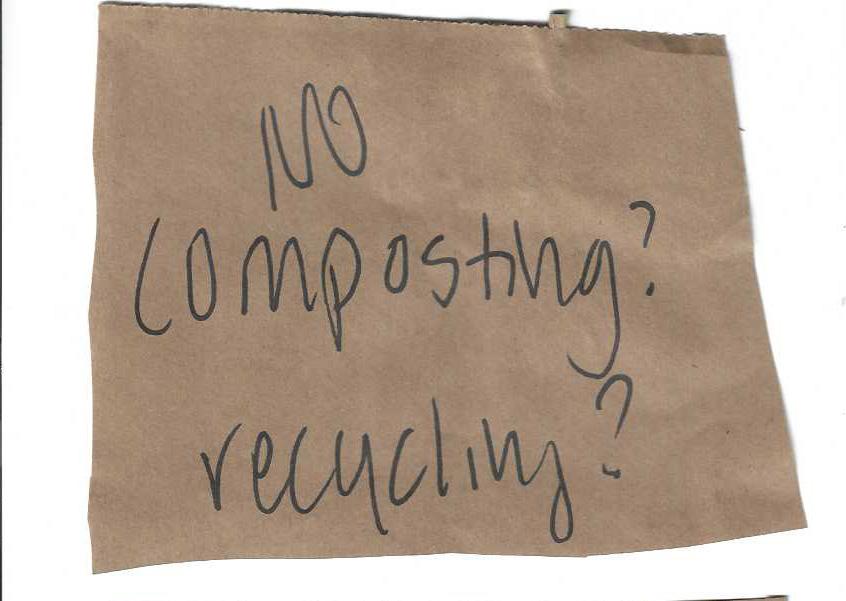 NO
composting?
recycling?